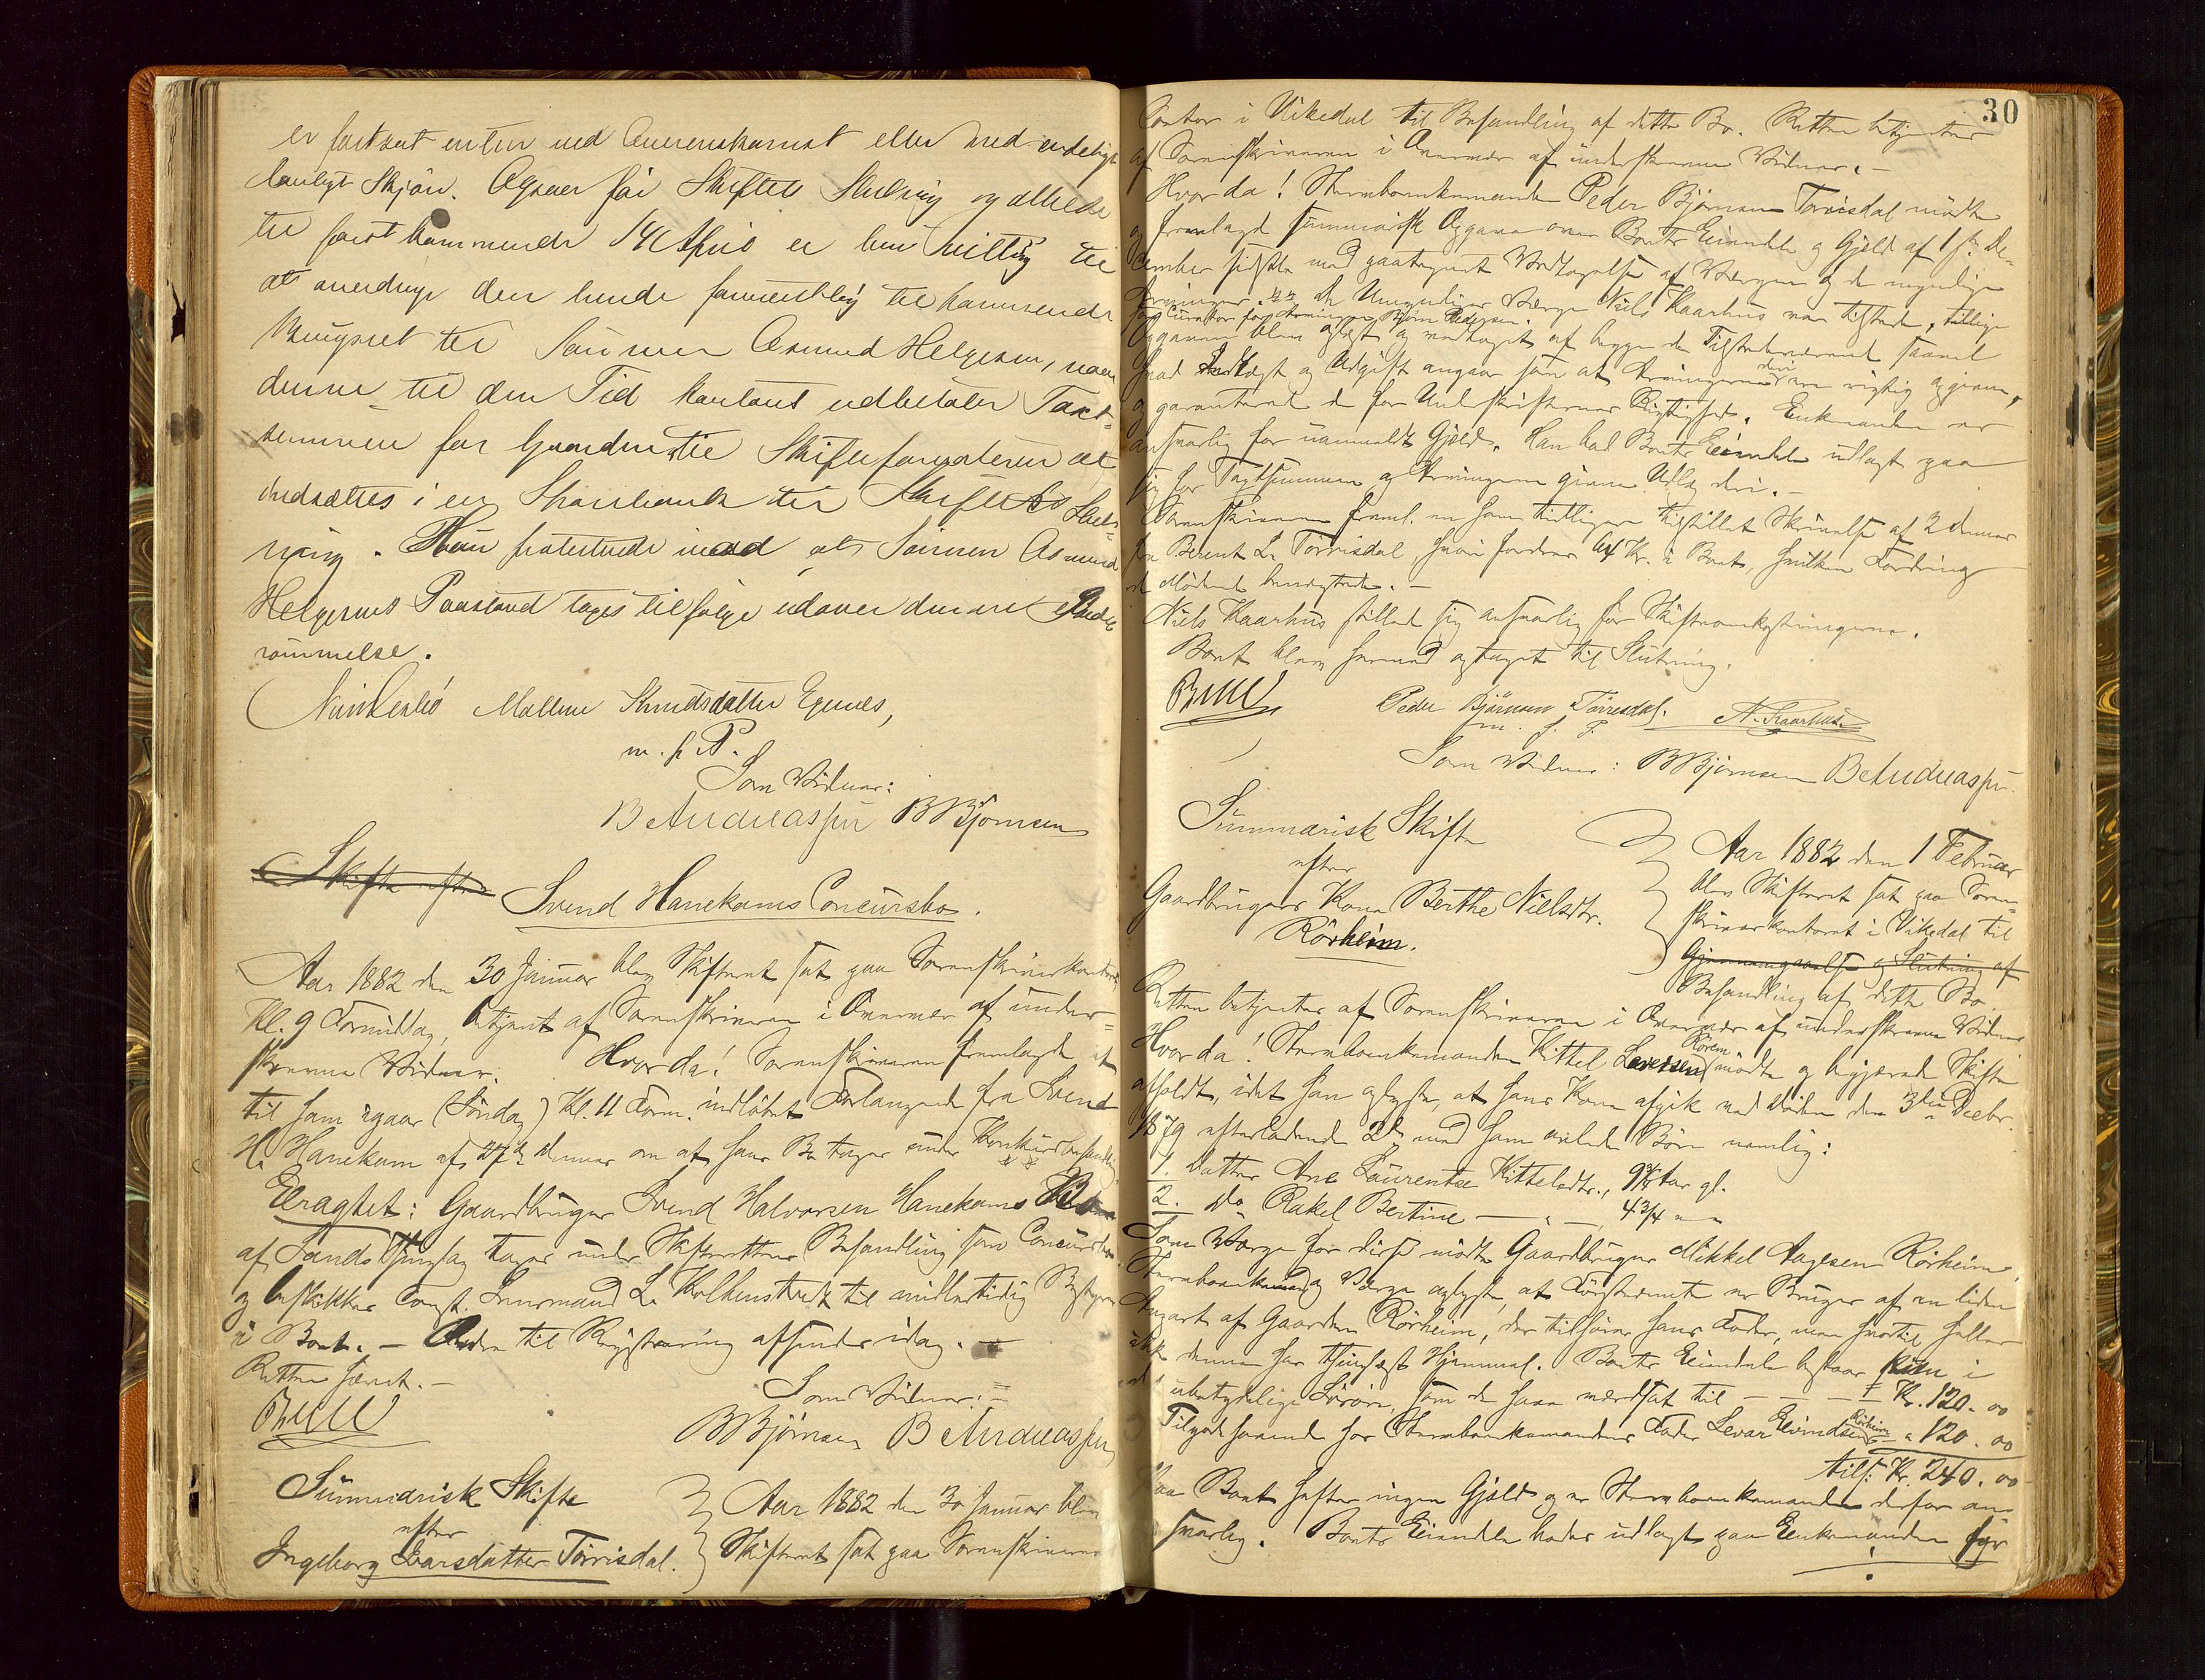 er fortsat enten ved Overenskomst eller ved endeligt
lovligt Skjøn. Ogsaa før Skiftets Slutning og allerede
til førstkommende 14 April er hun villig til
at overdrage den hende formentlig tilkommende
Brugsret til Sønnen Asmund Helgesen, naar
denne til den Tid kontant udbetaler Taxt-
summen for Gaarden til Skifteforvalteren at
indsættes i en Sparebank til Skiftets Slut-
ning. Hun protesterede imod, at Sønnen Asmund
Helgesens Paastand toges tilfølge udover denne
rømmelse.
Mallene Knudsdatter Egenes,
m. f. P.
Som Vidner:
B Andreassen BBjørnsen
Skifte efter Svend Hanekams Concursbo.
Aar 1882 den 30 Januar blev Skifteret sat paa Sorenskriverkontoret,
Kl. 9 Formiddag, betjent af Sorenskriveren i Overvær af under-
skrevne Vidner. Hvorda! Sorenskriveren fremlagde et
til ham igaar (Søndag) Kl. 11 Form. indløbet Forlangende fra Svend
H. Hanekam af 27de Januar om at hans Bo tages under Konkursbehandling
Eragtet: Gaardbruger Svend Halvorsen Hanekams Bo
af Sands Thinglag tages under Skifterettens Behandling som Concursbo
og beskikkes Const. Lensmand L. Kolbenstvedt til midlertidig Bestyrer
i Boet. – Ordre til Registrering afsendes idag. –
Retten hævet. –
Som Vidner:
BBjørnsen B Andreassen
Summarisk Skifte
efter
Ingeborg Ivarsdatter Tørrisdal.
Aar 1882 den 30 Januar blev
Skifteret sat paa Sorenskriver
30
Contor i Vikedal til Behandling af dette Bo. Retten betjentes
af Sorenskriveren i Overvær af underskrevne Vidner. –
Hvorda! Stervboenkemanden Peder Bjørnsen Tørrisdal mødte
og fremlagde summarisk Opgave over Boets Eiendele og Gjæld af 1ste De-
cember sidstl. med paategnet Vedtagelse af Værgen og de myndige
Arvinger. De Umyndiges Værge Niels Kaarhus var tilstede, tillige
som Curator for Arvingen Bjørn Pedersen.
Opgaven blev oplæst og vedtaget af begge de Tilstedeværende saavel
hvad Indtægt og Udgift angaar som at Arvingerne deri ere rigtig opgivne,
og garanterede de for Underskrifternes Rigtighed. Enkemanden er
ansvarlig for uanmeldt Gjæld. Han bad Boets Eiendele udlagt paa
sig for Taxtsummen og Arvingerne givne Udlæg deri. –
Sorenskriveren freml. en ham tidligere tilstillet Skrivelse af 2 Januar
fra Berent L. Tørrisdal, hvori fordres 64 Kr. i Boet, hvilken Fordring
de Mødende benægtede. –
Niels Kaarhus stillede sig ansvarlig for Skifteomkostningerne.
Boet blev hermed optaget til Slutning.
Peder Bjørnsen Tørrisdal. N. Kaarhus
m. f. P.
Som Vidner: BBjørnsen B Andreassen
Summarisk Skifte
efter
Gaardbrugers Kone Berthe Nielsdtr.
Rørheim.
Aar 1882 den 1 Februar
blev Skifteret sat paa Soren-
skriverkontoret i Vikedal til
Gjennemgaaelse og Slutning af
Behandling af dette Bo.
Retten betjentes af Sorenskriveren i Overvær af underskrevne Vidner
Hvorda! Stervboenkemanden Kittel Levarsen Rørem mødte og begjærede Skifte
afholdt, idet han oplyste, at hans Kone afgik ved Døden den 3die Decbr.
1879 efterladende 2de med ham avlede Børn nemlig:
1. Datter Ane Laurentse Kittelsdtr., 9¾ Aar gl.
2. do Rakel Bertine — " — , 4¾ " "
Som Værge for disse mødte Gaardbruger Mikkel Aagesen Rørheim.
Stervboenkemand og Værge oplyste, at Førstnævnte er Bruger af en liden
Anpart af Gaarden Rørheim, der tilhører hans Fader, men hvortil heller
ikke denne har thinglæst Hjemmel. Boets Eiendele bestaar kun i
ubetydelige Løsøre, som de haver værdsat til — — — Kr. 120. 00
Tilgodehavende hos Stervboenkemandens Fader Levar Eivindsen Rørheim " 120. 00
tils. Kr. 240. 00
Paa Boet hefter ingen Gjæld og er Stervboenkemanden derfor an-
svarlig. Boets Eiendele bades udlagt paa Enkemanden for